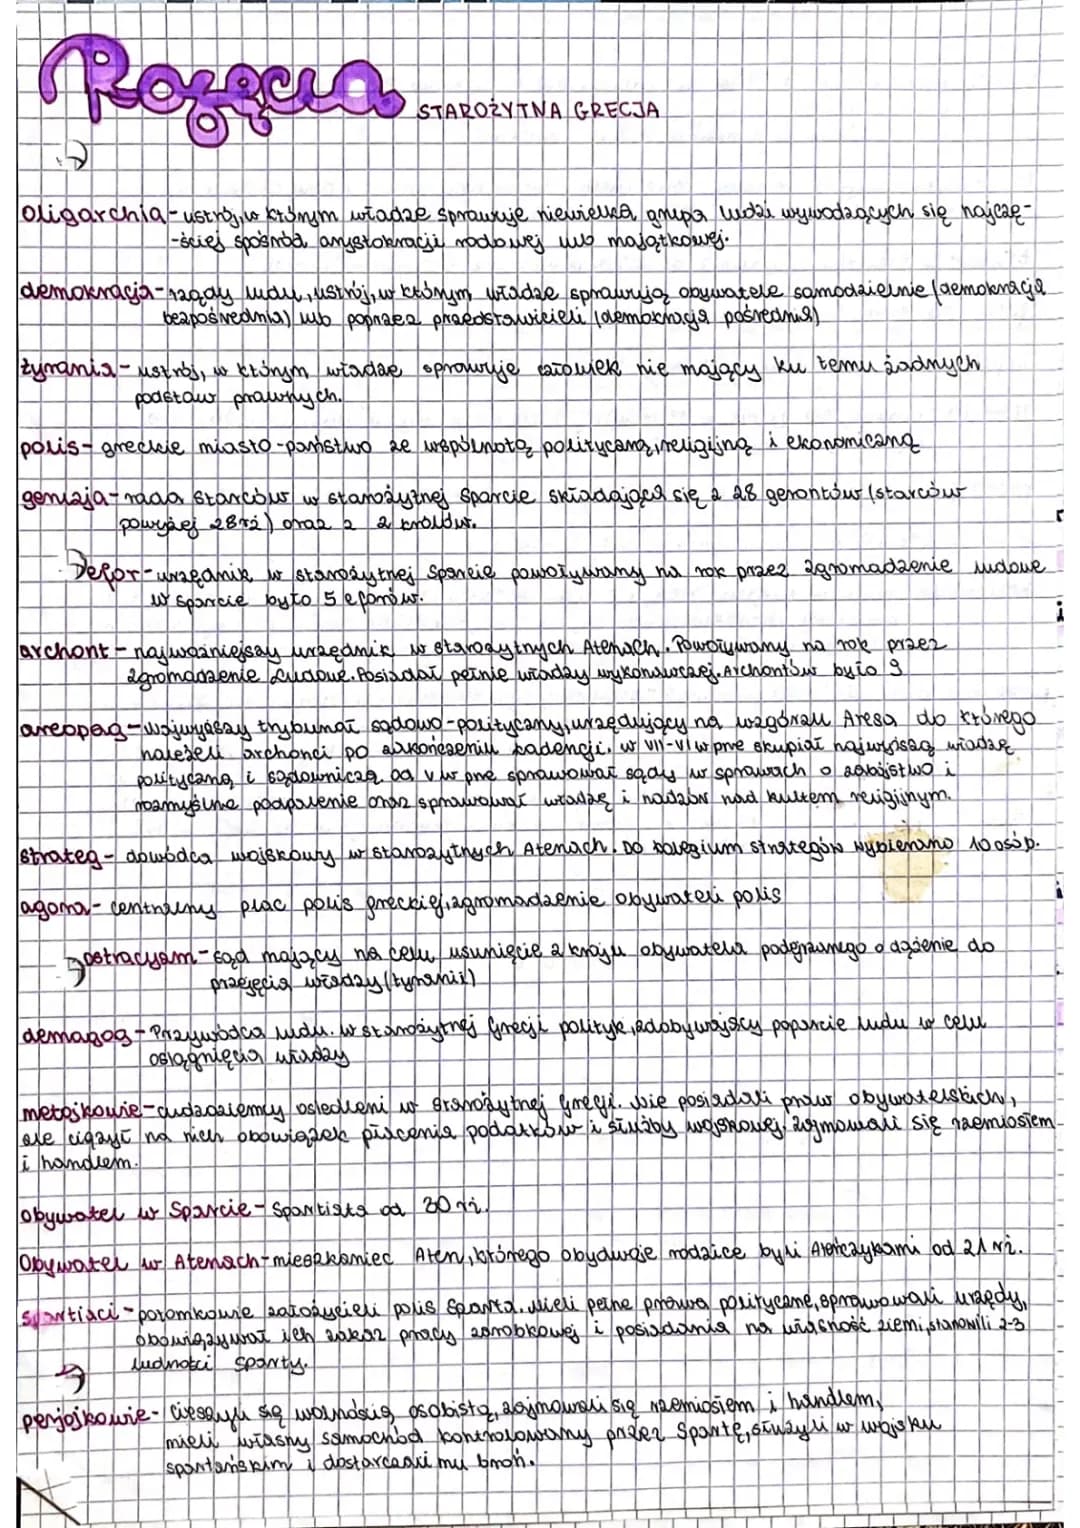 Pojęcia STAROŻYTNA GRECJA
oligarchia - ustrój, w którym władze sprawuje niewielka grupa ludzi wywodzących się najczę-
-ściej spośród arystokracji rodowej lub majątkowej.
demokracja - rządy ludu, ustrój, w którym władze sprawują obywatele samodzielnie (demokracja
bezpośrednia) lub poprzez przedstawicieli (demokracja pośrednia)
tyrania - ustrój, w którym władze sprawuje człowiek nie mający ku temu żadnych
podstaw prawnych.
polis - greckie miasto-państwo ze wspólnotą polityczną, religijną i ekonomiczną
geruzja - rada starców w starożytnej Sparcie składająca się z 28 gerontów (starców
powyżej 28rż) oraz z 2 królów.
efor - urzędnik w starożytnej Sparcie powoływany na rok przez zgromadzenie ludowe
w Sparcie było 5 eforów.
archont - najważniejszy urzędnik w starożytnych Atenach. Powoływany na rok przez
zgromadzenie Ludowe. Posiadał pełnię władzy wykonawczej. Archontów było 9
areopag - najwyższy trybunał sądowo-polityczny, urzędujący na wzgórzu Aresa do którego
należeli archonci po zakończeniu kadencji. w VII-VI w pne skupiał najwyższą władzę
polityczną i sądowniczą od V w pne sprawował sądy w sprawach o zabójstwo i
rozmyślne podpalenie oraz sprawował władzę i nadzór nad kultem religijnym.
strateg - dowódca wojskowy w starożytnych Atenach. Do kolegium strategów wybierano 10 osób.
agora - centralny plac polis greckiej, zgromadzenie obywateli polis
ostracyzm - sąd mający na celu usunięcie z kraju obywatela podejrzanego o dążenie do
przejęcia władzy (tyranii)
demagog - Przywódca ludu. w starożytnej Grecji polityk, zdobywający poparcie ludu w celu
osiągnięcia władzy
metojkowie - cudzoziemcy osiedleni w starożytnej Grecji. Nie posiadali praw obywatelskich,
ale ciążył na nich obowiązek płacenia podatków i służby wojskowej. Zajmowali się rzemiosłem
i handlem.
obywatel w Sparcie - Spartiata od 30 rż.
Obywatel w Atenach - mieszkaniec Aten, którego obydwoje rodzice byli Ateńczykami od 21 rż.
spartiaci - potomkowie założycieli polis Sparta. Mieli pełne prawa polityczne, sprawowali urzędy,
obowiązywał ich zakaz pracy zarobkowej i posiadania na własność ziemi, stanowili 2-3
ludności Sparty.
periojkowie - cieszyli się wolnością osobistą, zajmowali się rzemiosłem i handlem,
mieli własny samochód kontrolowany przez Spartę, służyli w wojsku
spartańskim i dostarczali mu broń.